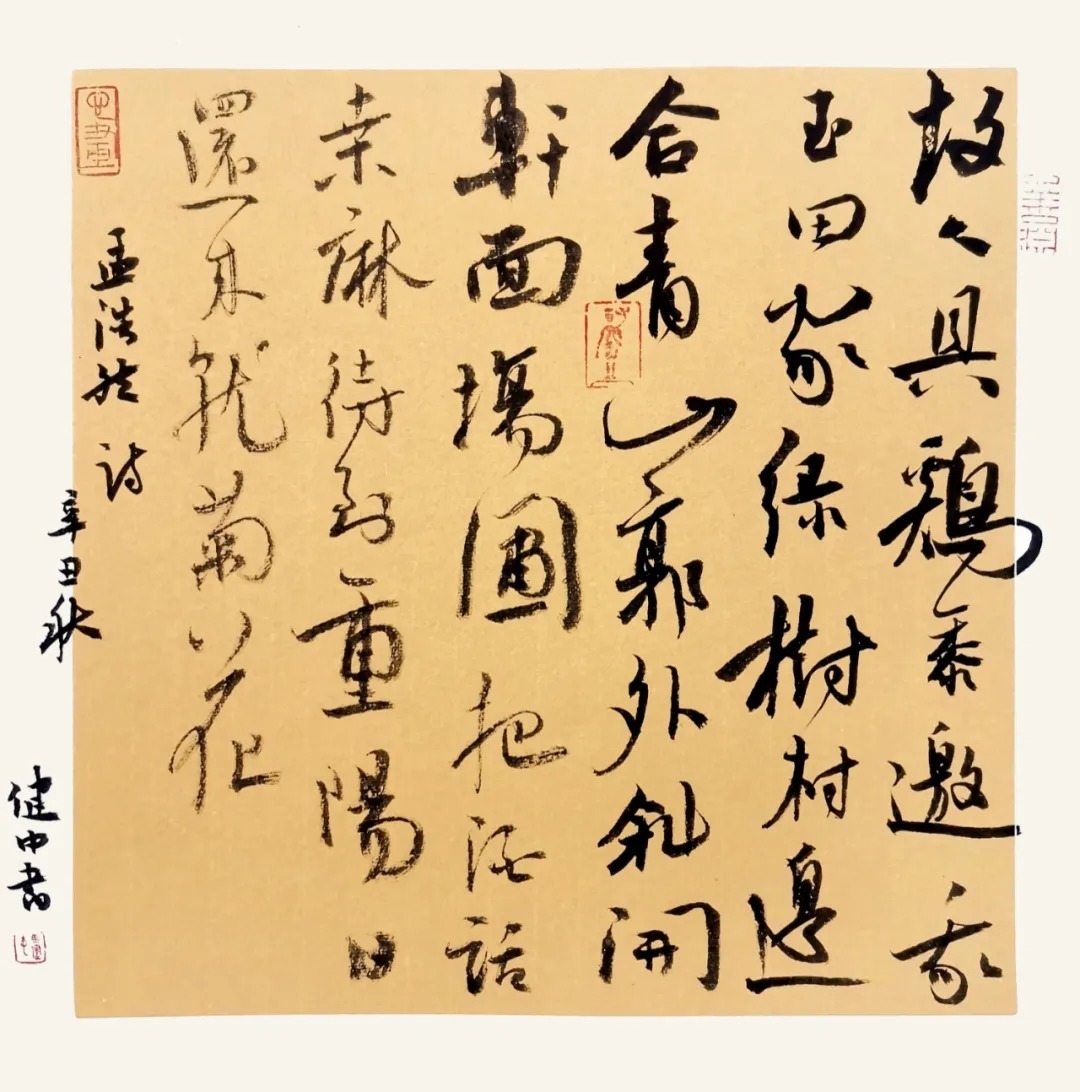 故人具鷄黍邀我
至田家绿樹村邊
合青山郭外斜開
軒面場圃把酒話
桒麻待到重陽日
還来就菊花
孟浩然诗
辛丑秋
健中書